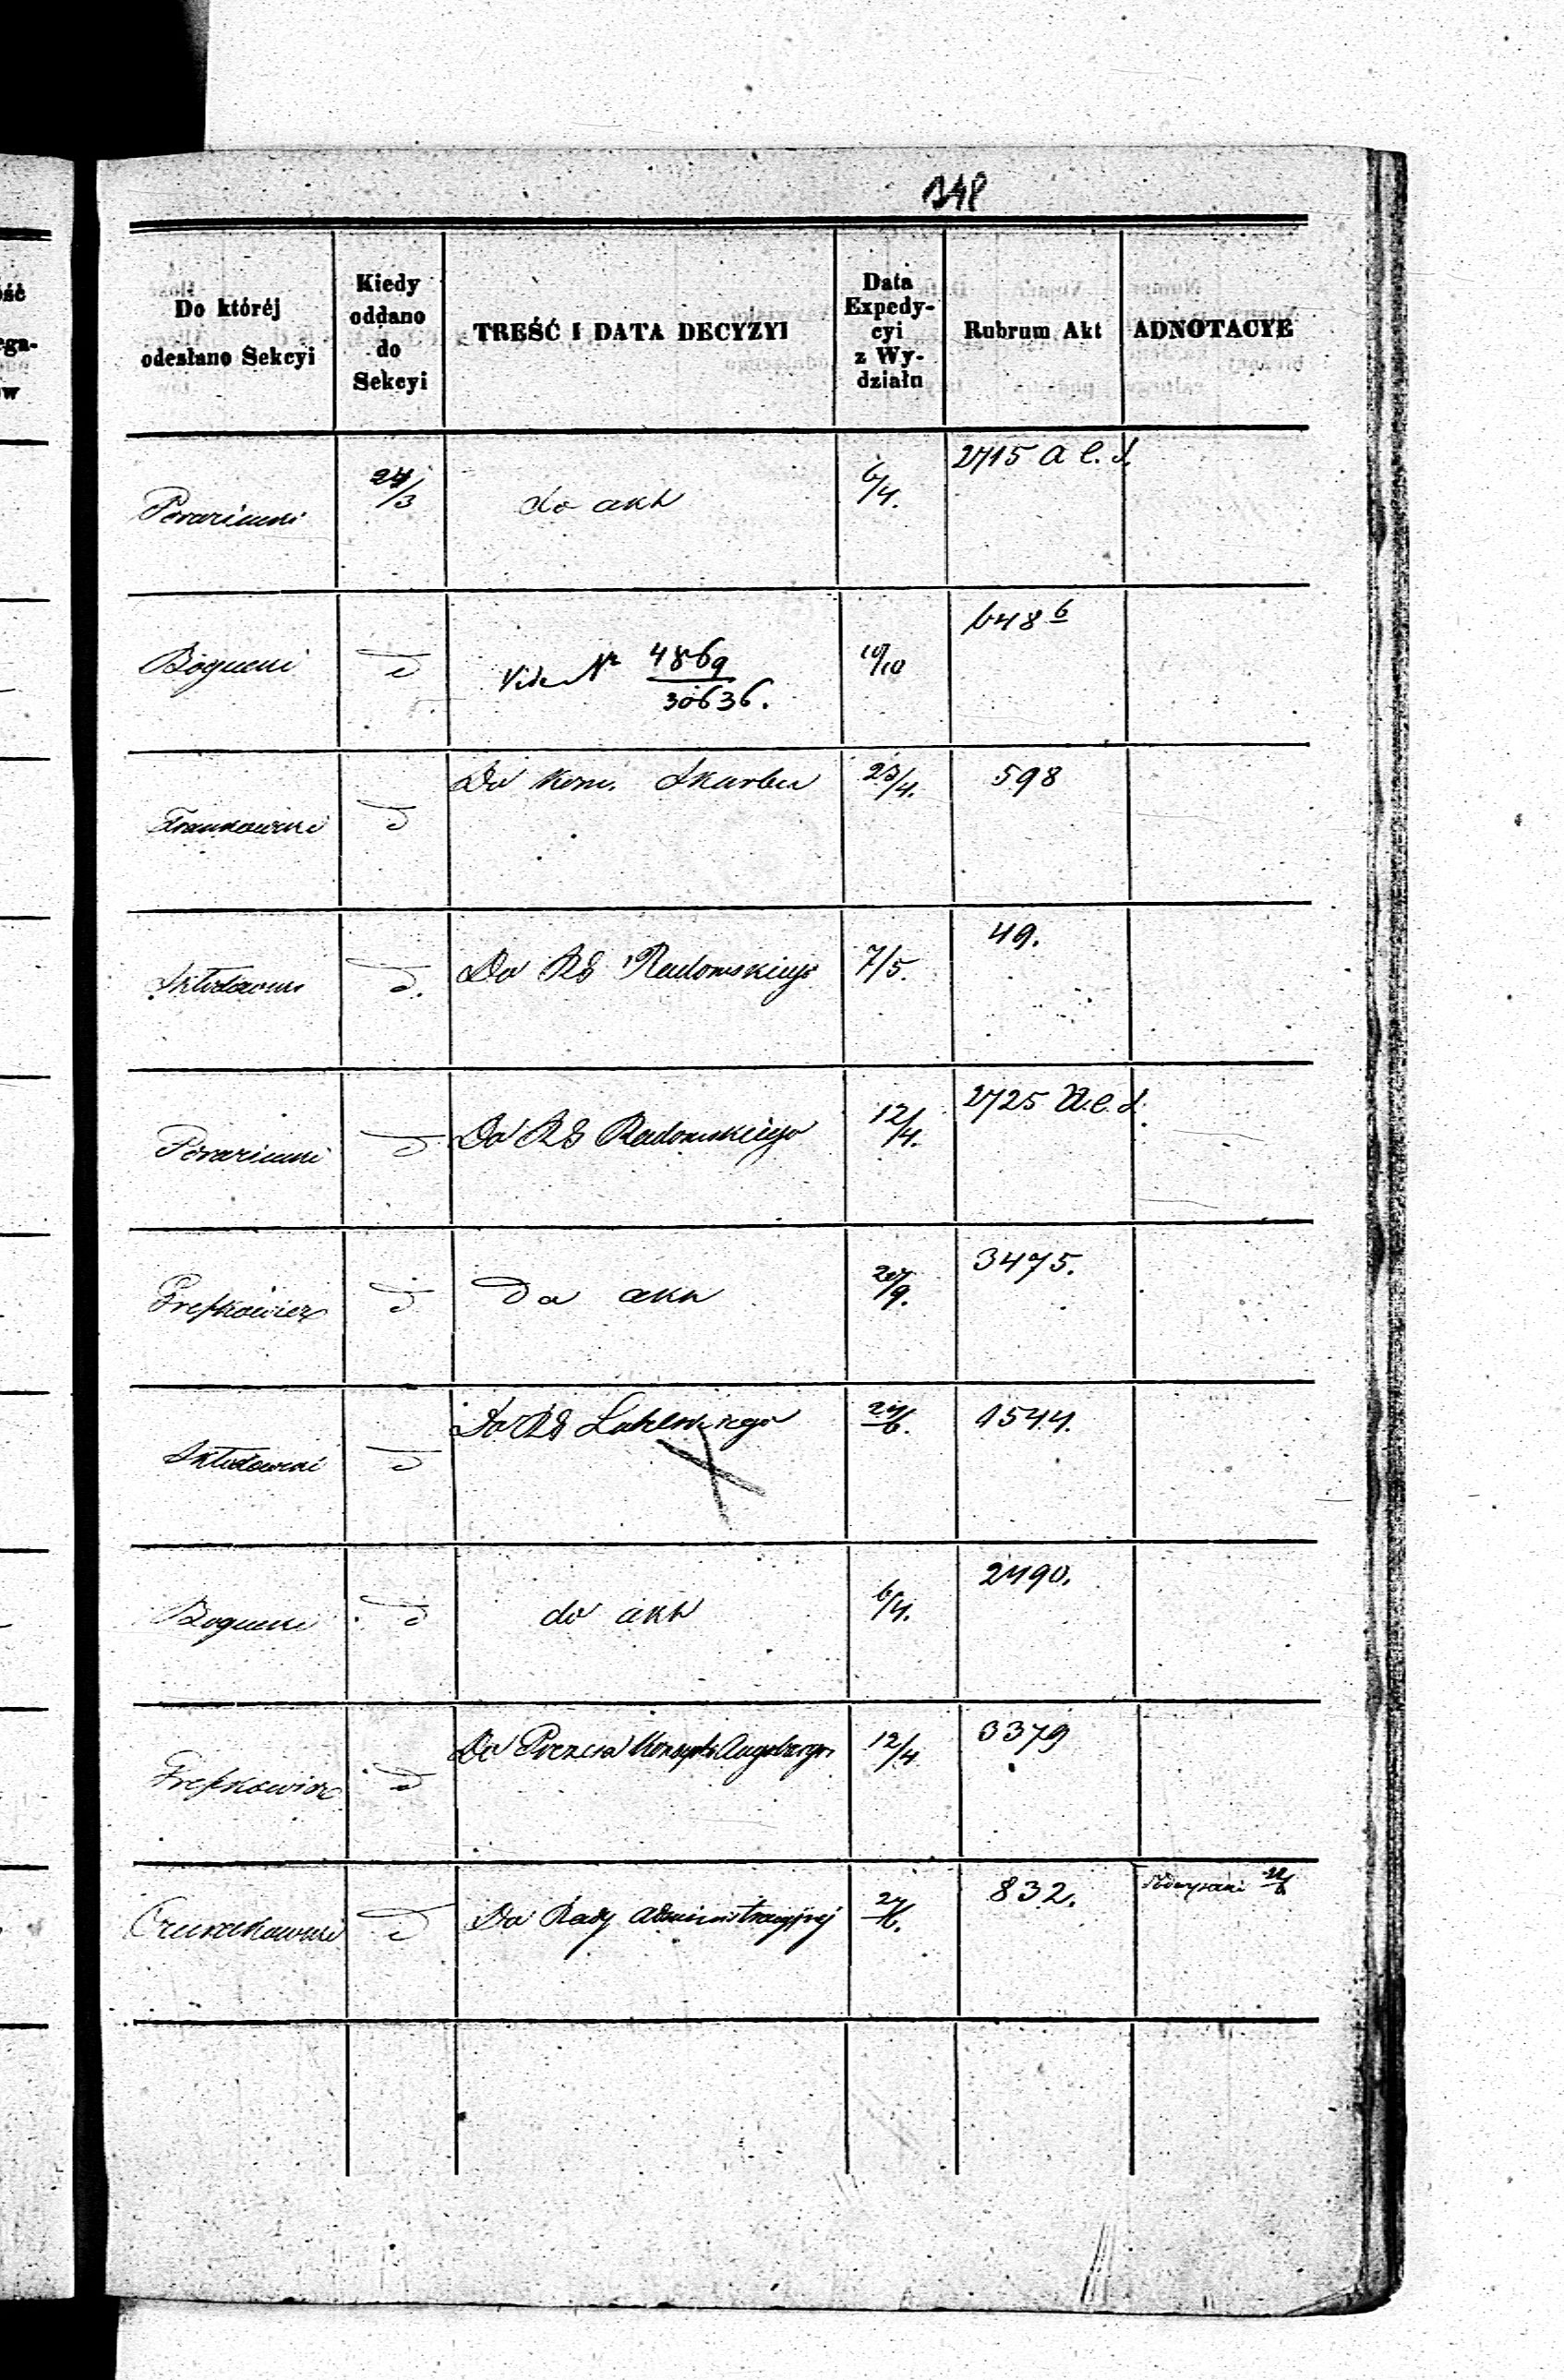 348
Do któréj odesłano Sekcyi | Kiedy oddano do Sekcyi | TREŚĆ I DATA DECYZYI | Data Expedycyi z Wydziału | Rubrum Akt | ADNOTACYE
24/3 | do akt | 6/4. | 2715 a e. d.
Bogucki | d | Vide Nr 4869/30636. | 10/10 | 648 6
d | Do Kom. Skarbu | 23/4. | 598
Skłodowski | d. | Do RG Radomskiego | 7/5. | 49.
d | Do RG Radomskiego | 12/4. | 2725 a.e.d.
Freszkowicz | d | Do akt | 27/9. | 3475.
Skłodowski | d | Do RG Lubelskiego | 24/6. | 1544.
Bogucki | d | do akt | 6/4. | 2490.
Freszkowicz | d | Do Prezesa | 12/4 | 3379
d | Do Rady Administracyjnej | 832.